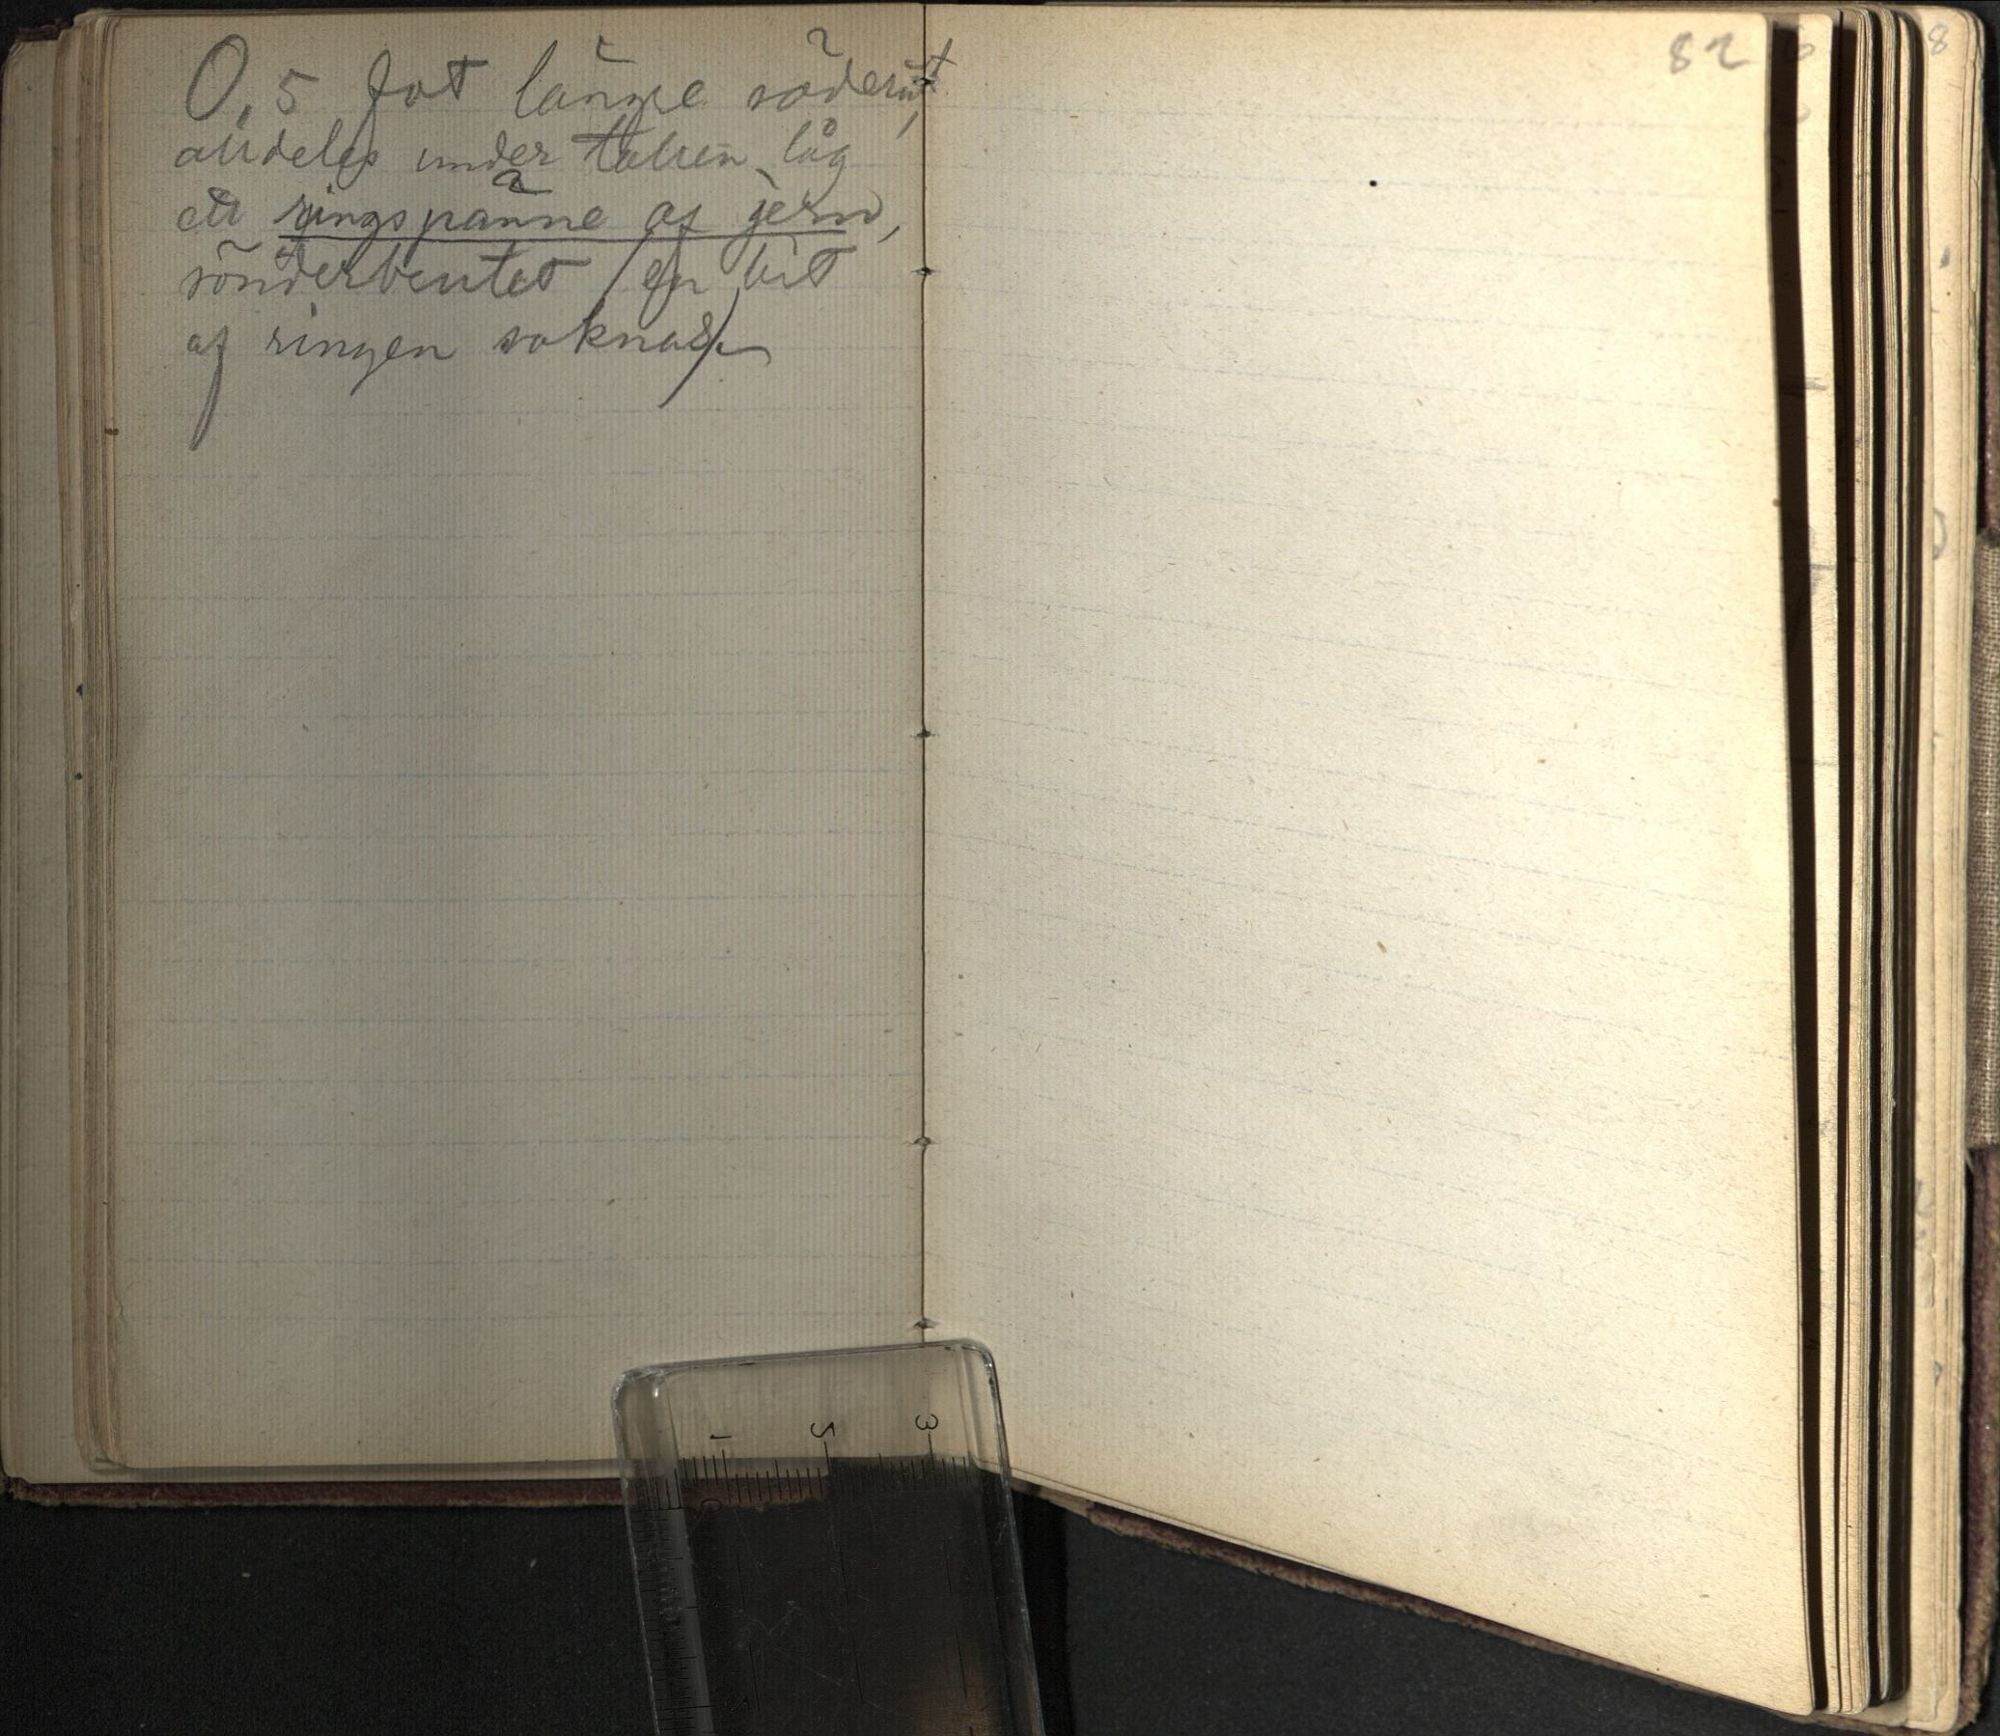 0,5 fot längre söderut,
alldeles under tofven låg
ett ringspänne af jern,
sönderbrutet (en bit
af ringen saknas).
82
8